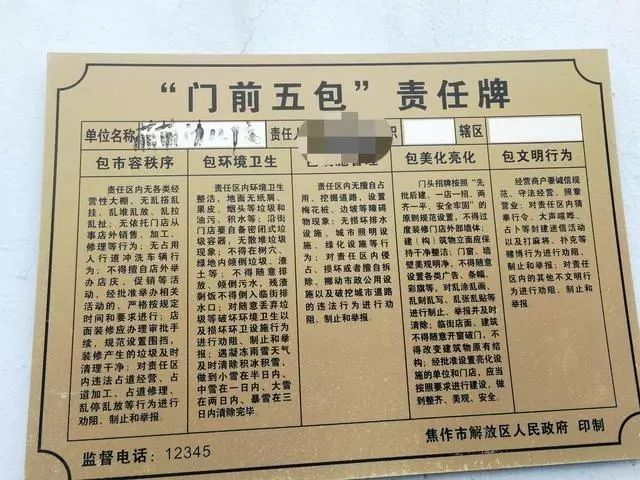 “门前五包”责任牌
单位名称
责任人
辖区
包市容秩序
责任区内无各类经
营性大棚，无乱搭乱
挂、乱堆乱放、乱拉
乱扯；无依托门店从
事店外销售、加工、
修理等行为；无占用
人行道冲洗车辆行
为；不得擅自店外举
办店庆、促销等活
动，经批准举办相关
活动的，严格按规定
时间和要求进行；店
面装修应办理审批手
续，规范设置围挡，
装修产生的垃圾及时
清理干净；对责任区
内违法占道经营、占
道加工、占道修理、
乱停乱放等行为进行
劝阻、制止和举报。
包环境卫生
责任区内环境卫生
整洁，地面无纸屑、
果皮、烟头等垃圾和
油污、积水等；沿街
门店要自备密闭式垃
圾容器，无散堆垃圾
现象；不得在树穴、
绿地内倾倒垃圾、渣
土等；不得随意排
放、倾倒污水，残渣
剩饭不得倒入临街排
水口；对随意丢弃垃
圾等破坏环境卫生以
及损坏环卫设施行为
进行劝阻、制止和举
报；遇凝冻雨雪天气
及时清除积冰积雪，
做到小雪在半日内、
中雪在一日内、大雪
在两日内、暴雪在三
日内清除完毕
责任区内无擅自占
用、挖掘道路，设置
梅花桩、边坡等障碍
物现象；无损坏排水
设施、城市照明设
施、绿化设施等行
为；对责任区内侵
占、损坏或者擅自拆
除、挪动市政公用设
施以及破挖城市道路
的违法行为进行劝
阻、制止和举报。
包美化亮化
门头招牌按照“先
批后建、一店一招、两
齐一平、安全牢固”的
原则规范设置，不得过
度装修门店外部墙体；
建（构）筑物立面应保
持干净整洁；门窗、墙
壁美观明净，不得随意
设置各类广告、条幅、
彩旗等，对乱涂乱画、
乱刻乱写、乱张乱贴等
进行制止、举报并及时
清除；临街店面、建筑
不得随意开窗破门，不
得改变建筑物原有结
构；经批准设置亮化设
施的单位和门店，应当
按照要求进行建设，做
到整齐、美观、安全。
包文明行为
经营商户要诚信规
范、守法经营、照章营
业；对责任区内猜
拳行令、大声喧哗、
占卜等封建迷信活动
以及打麻将、扑克等
赌博行为进行劝
阻、制止和举报；对责任
区内的其他不文明行
为进行劝阻、制止和
举报。
监督电话：12345
焦作市解放区人民政府 印制